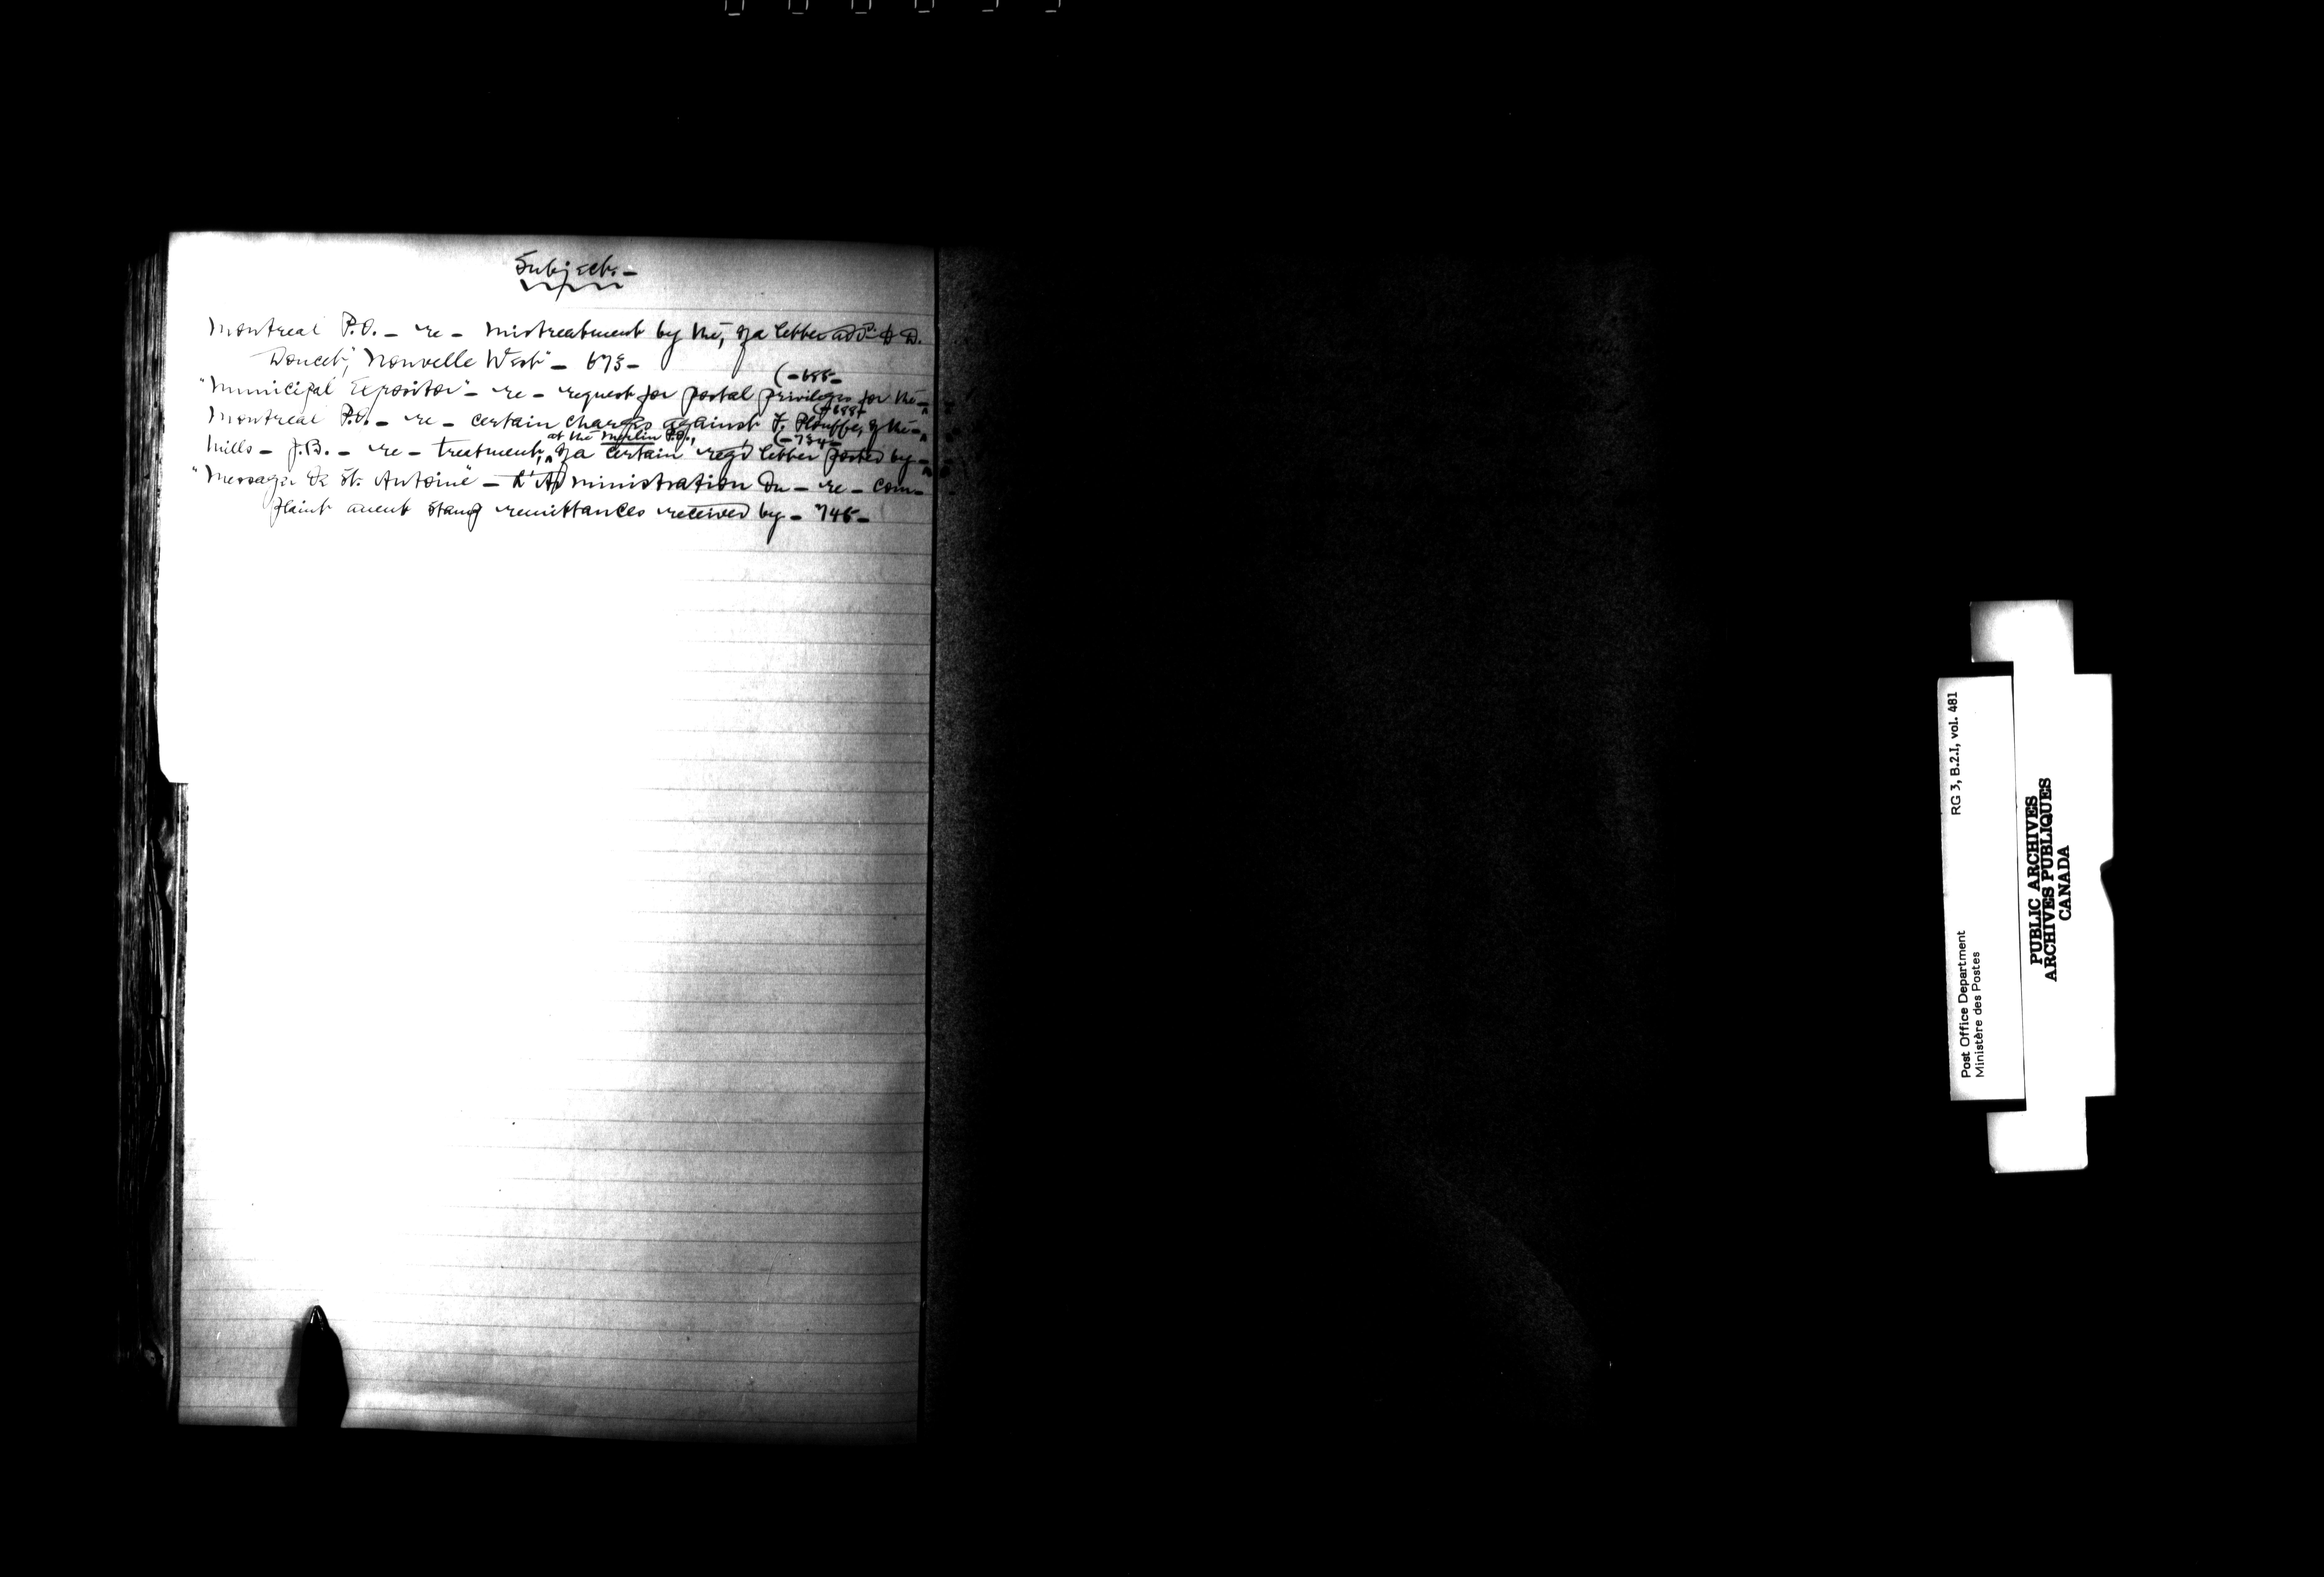 Subject. –
Montreal P.O. – re – mistreatment by the, of a letter add'd to D.
Doucet, Nouvelle West – 673 –
(– 685 –
"Municipal Expositor" – re – request for postal privileges for the –
(– 688 –
Montreal P.O. – re – certain charges against F. Plouffe, of the –
at the Merlin P.O., (– 734 –
Mills – J.B. – re – treatment, of a certain reg'd letter posted by –
"Messager de St. Antoine" – L'Administration du – re – com-
plaint anent stamp remittances received by – 745 –
RG 3, B.2.I, vol. 481
Post Office Department
Ministère des Postes
PUBLIC ARCHIVES
ARCHIVES PUBLIQUES
CANADA